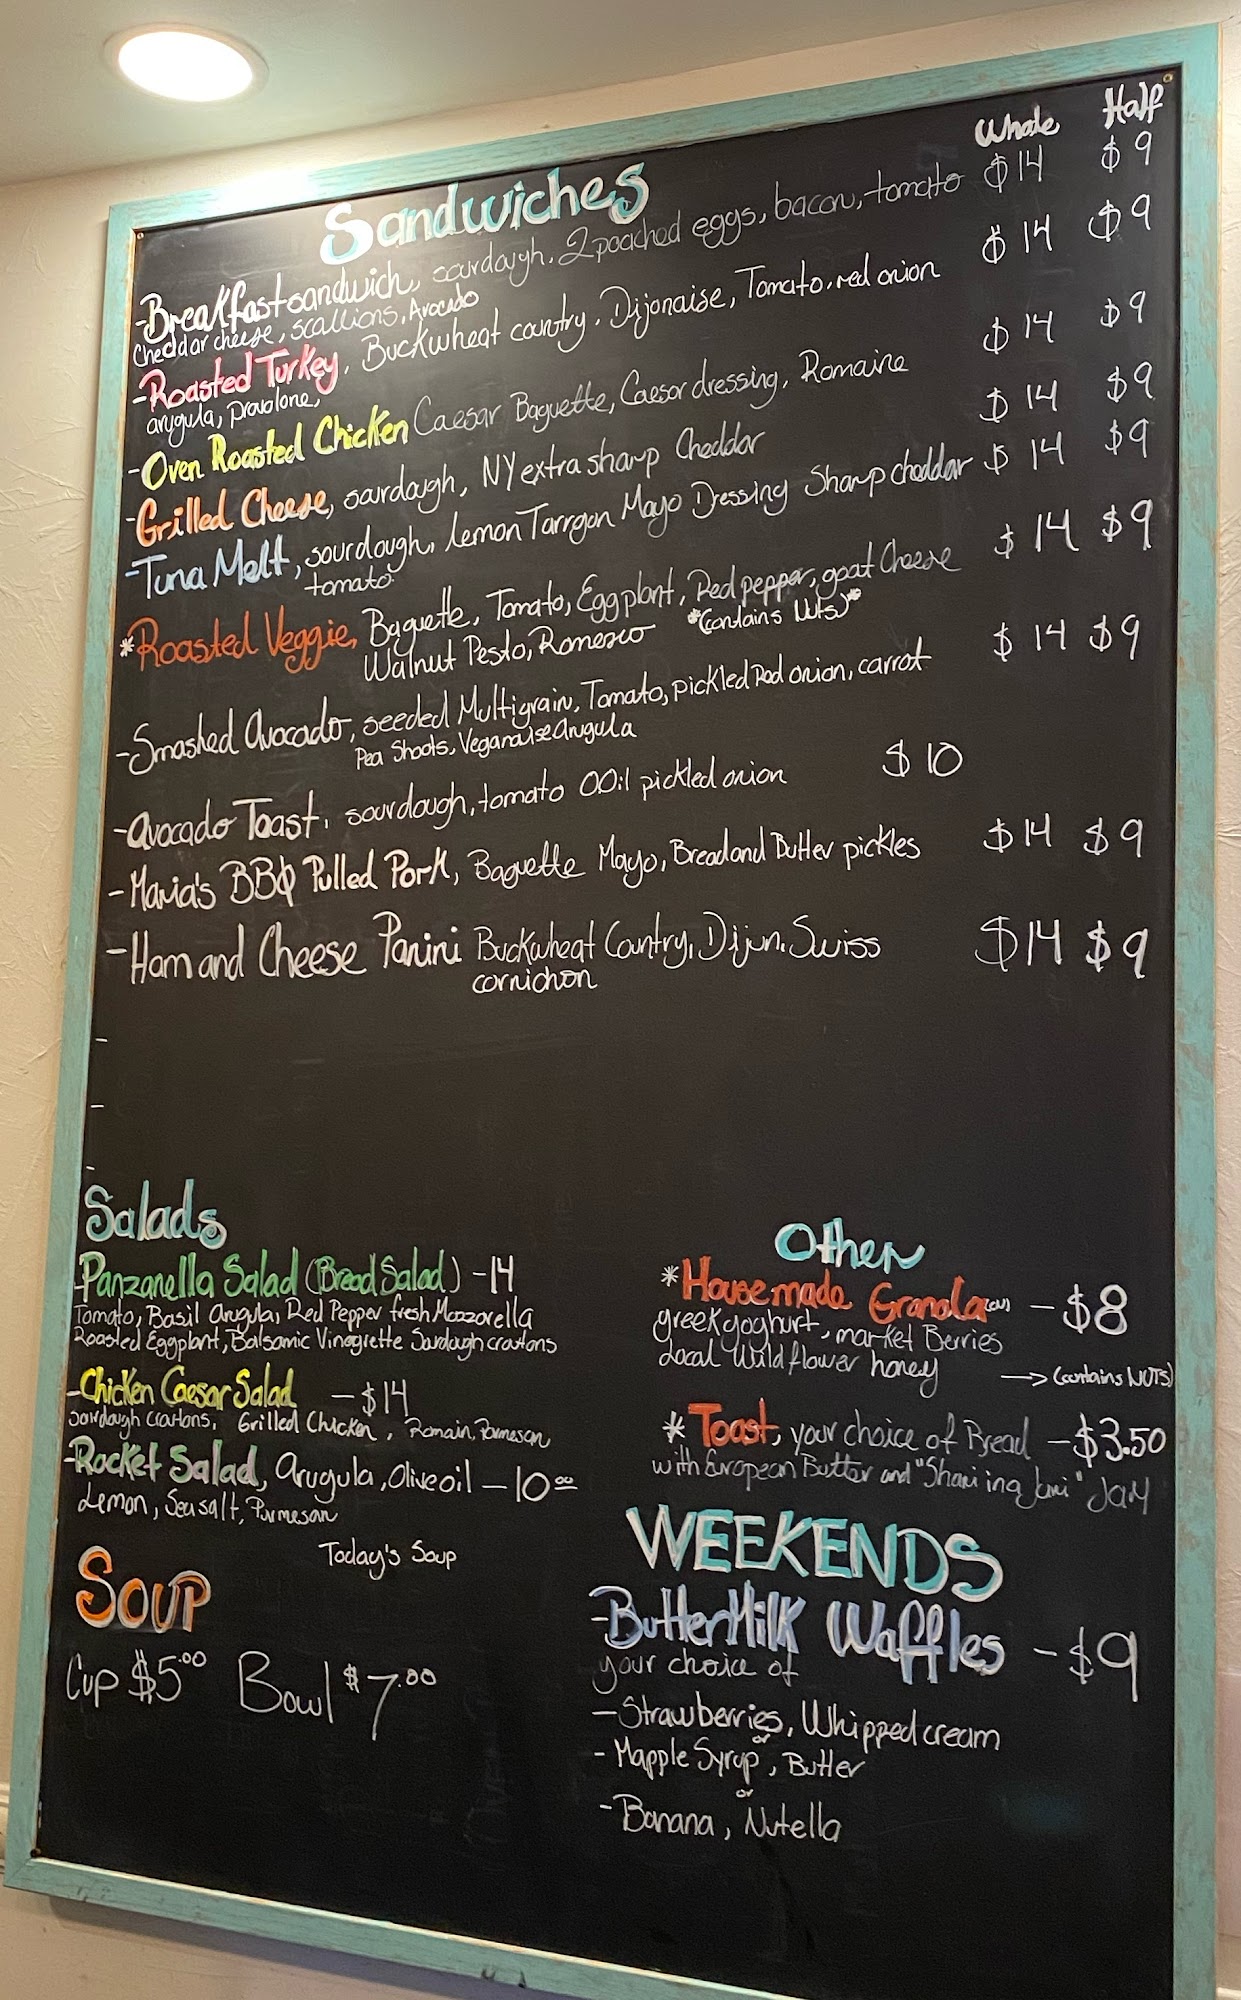 Whole Half
Sandwiches
-Breakfast sandwich, sourdough, 2 poached eggs, bacon, tomato $14 $9
Cheddar cheese, scallions, Avocado
-Roasted Turkey, Buckwheat country, Dijonaise, Tomato, red onion $14 $9
arugula, provolone,
-Oven Roasted Chicken Caesar Baguette, Caesar dressing, Romaine $14 $9
-Grilled Cheese, sourdough, NY extra sharp Cheddar $14 $9
-Tuna Melt, sourdough, lemon Tarrgon Mayo Dressing Sharp cheddar $14 $9
tomato
*Roasted Veggie, Baguette, Tomato, Eggplant, Red pepper, goat Cheese $14 $9
Walnut Pesto, Romesco *(contains Nuts)*
-Smashed Avocado, seeded Multigrain, Tomato, pickled Red onion, carrot $14 $9
Pea Shoots, Veganaise Arugula
-Avocado Toast, sourdough, tomato OOil pickled onion $10
-Maria's BBQ Pulled Pork, Baguette Mayo, Bread and Butter pickles $14 $9
-Ham and Cheese Panini Buckwheat Country, Dijon, Swiss $14 $9
cornichon
-
-
-
Salads
-Panzanella Salad (Bread Salad) -14
Tomato, Basil Arugula, Red Pepper fresh Mozzarella
Roasted Eggplant, Balsamic Vinegrette Sourdough croutons
-Chicken Caesar Salad -$14
Sourdough croutons, Grilled Chicken, Romain, Parmesan
-Rocket Salad, Arugula, Olive oil -10.00
Lemon, Sea salt, Parmesan
Today's Soup
Soup
Cup $5.00 Bowl $7.00
Other
*Housemade Granola -$8
greek yoghurt, market Berries
Local Wildflower honey → (contains NUTS)
*Toast, your choice of Bread -$3.50
with European Butter and Jam
WEEKENDS
-ButterMilk Waffles -$9
your choice of
-Strawberries, Whipped cream
or
-Mapple Syrup, Butter
or
-Banana, Nutella